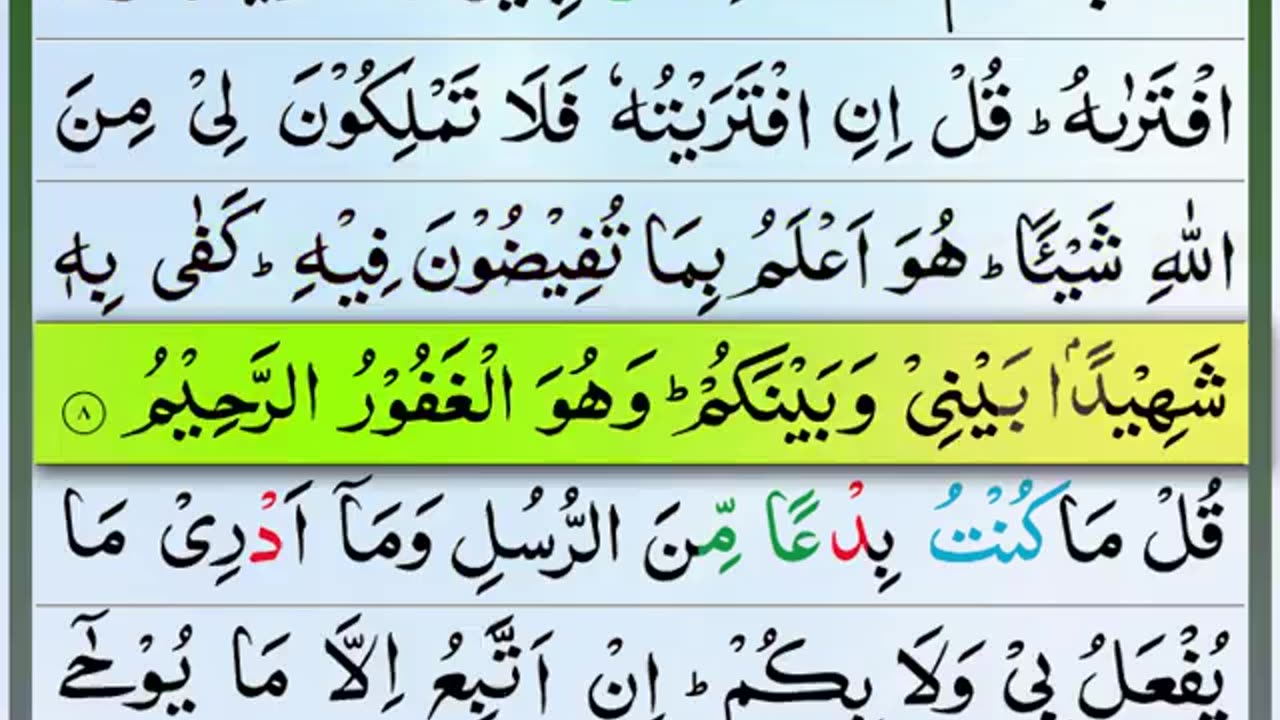 افْتَرٰىهُ ؕ قُلْ اِنِ افْتَرَيْتُهٗ فَلَا تَمْلِكُوْنَ لِيْ مِنَ
اللّٰهِ شَيْـًٔا ؕ هُوَ اَعْلَمُ بِمَا تُفِيْضُوْنَ فِيْهِ ؕ كَفٰى بِهٖ
شَهِيْدًۢا بَيْنِيْ وَبَيْنَكُمْ ؕ وَهُوَ الْغَفُوْرُ الرَّحِيْمُ ۝۸
قُلْ مَا كُنْتُ بِدْعًا مِّنَ الرُّسُلِ وَمَاۤ اَدْرِيْ مَا
يُفْعَلُ بِيْ وَلَا بِكُمْ ؕ اِنْ اَتَّبِعُ اِلَّا مَا يُوْحٰۤى